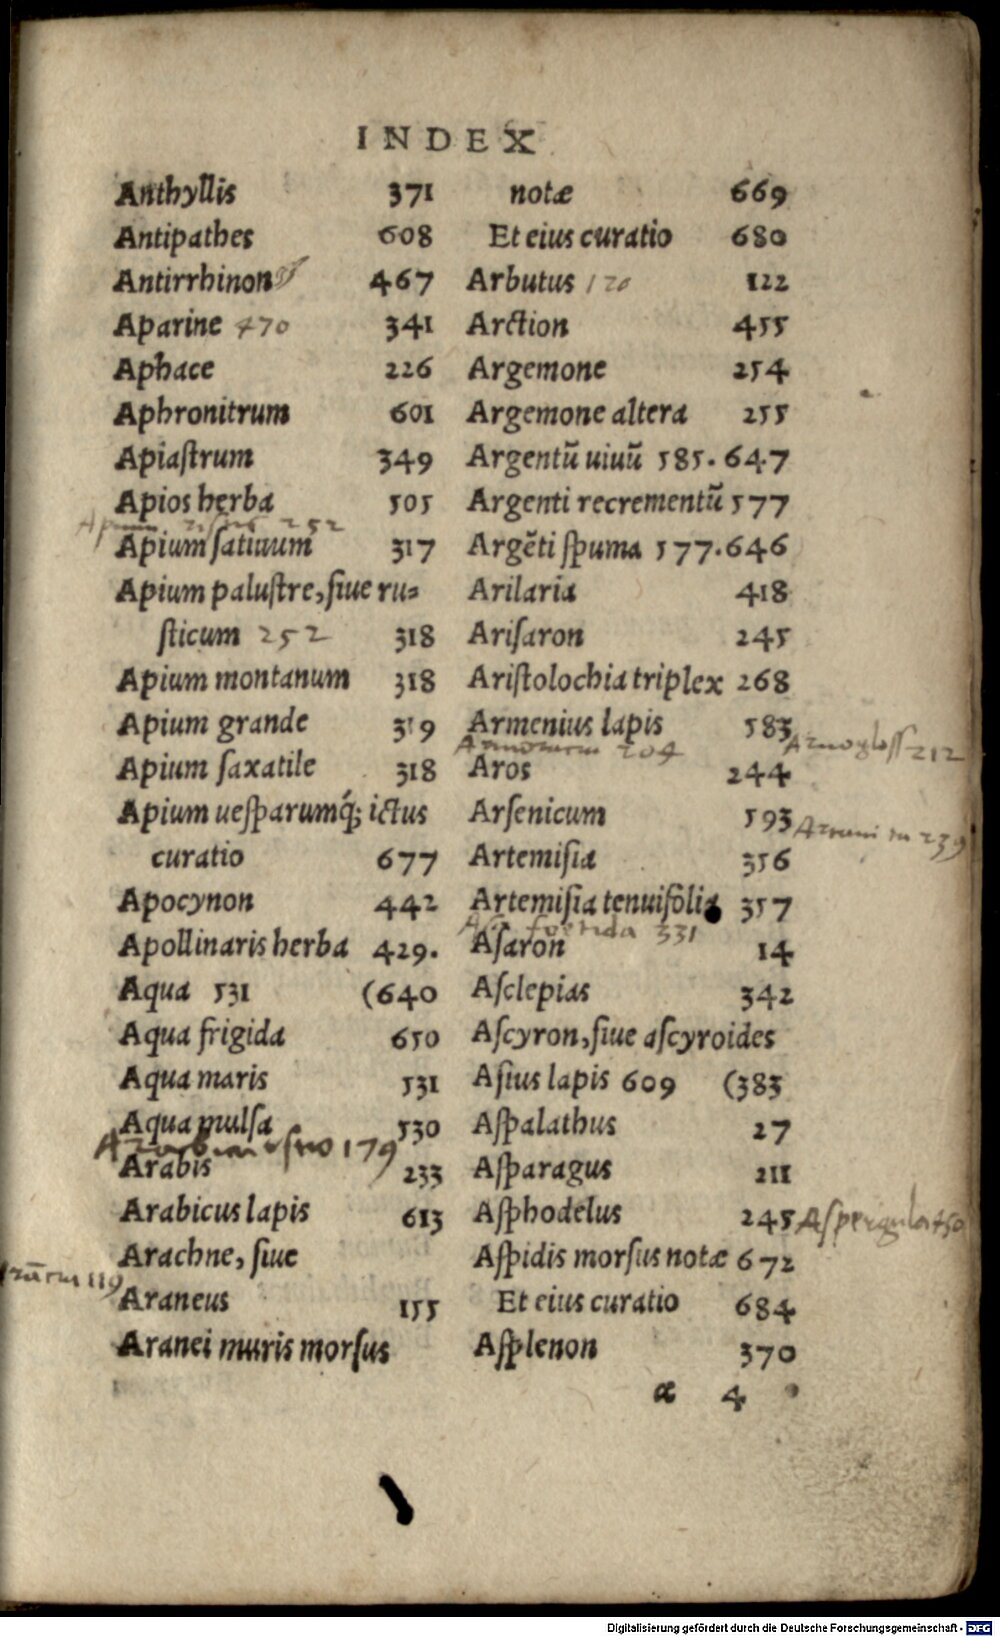 INDEX
Anthyllis 371
Antipathes 608
Antirrhinon 467
Aparine 470 341
Aphace 226
Aphronitrum 601
Apiaſtrum 349
Apios herba 505
252
Apium ſatiuum 317
Apium paluſtre, ſiue ru⸗
ſticum 252 318
Apium montanum 318
Apium grande 319
Apium ſaxatile 318
Apium ueſparumq́; ictus
curatio 677
Apocynon 442
Apollinaris herba 429.
Aqua 531 (640
Aqua frigida 650
Aqua maris 531
Aqua mulſa 530
179
Arabis 233
Arabicus lapis 613
Arachne, ſiue
119
Araneus 155
Aranei muris morſus
notæ 669
Et eius curatio 680
Arbutus 120 122
Arction 455
Argemone 254
Argemone altera 255
Argentū uiuū 585. 647
Argenti recrementū 577
Argēti ſpuma 577. 646
Arilaria 418
Ariſaron 245
Ariſtolochia triplex 268
Armenius lapis 583
Arnogloſſ 212
204
Aros 244
Arſenicum 593
239
Artemiſia 356
Artemiſia tenuifolia 357
Aſa foetida 331
Aſaron 14
Aſclepias 342
Aſcyron, ſiue aſcyroides
Aſius lapis 609 (383
Aſpalathus 27
Aſparagus 211
Aſphodelus 245
Aſpergula 450
Aſpidis morſus notæ 672
Et eius curatio 684
Aſplenon 370
æ 4
Digitalisierung gefördert durch die Deutsche Forschungsgemeinschaft - DFG